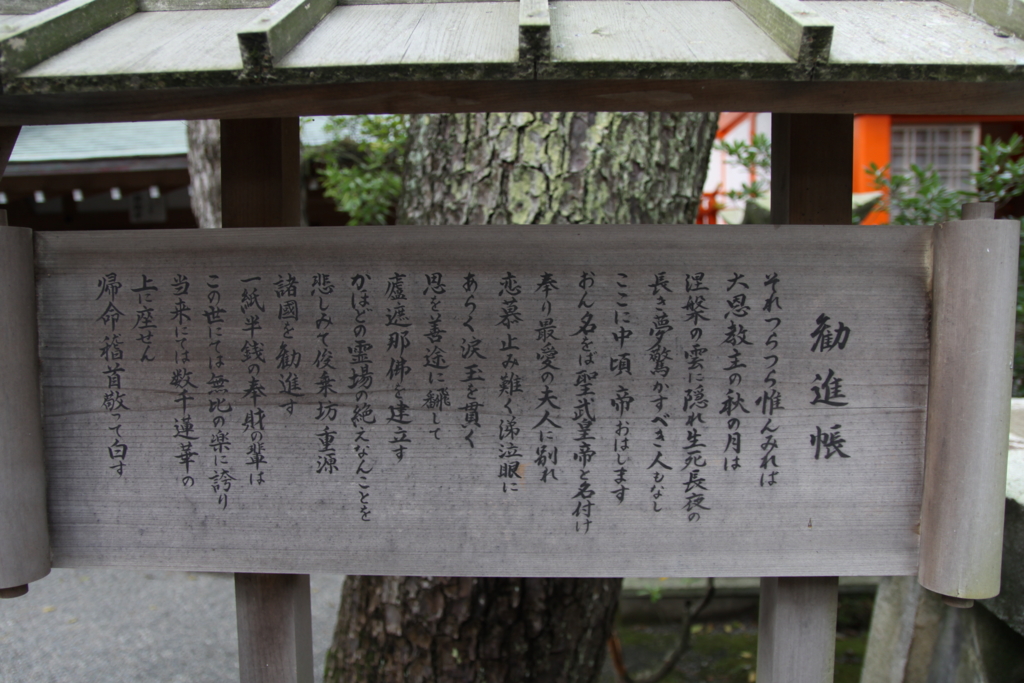 勧進帳
それつらつら惟んみれば
大恩教主の秋の月は
涅槃の雲に隠れ生死長夜の
長き夢驚かすべき人もなし
ここに中頃 帝おはします
おん名をば聖武皇帝と名付け
奉り最愛の夫人に別れ
恋慕止み難く涕泣眼に
あらく涙玉を貫く
思を善途に飜して
盧遮那佛を建立す
かほどの霊場の絶えなんことを
悲しみて俊乗坊重源
諸國を勧進す
一紙半銭の奉財の輩は
この世にては無比の楽に誇り
当来にては数千蓮華の
上に座せん
帰命稽首敬って白す